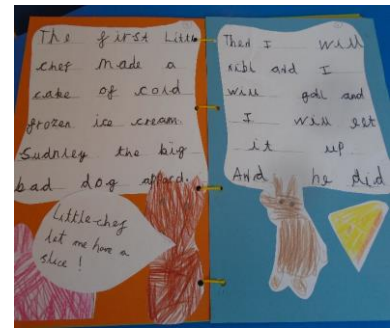 The first Little
chef made a
cake of cold
frozen ice cream.
Sudnley the big
bad dog apperd.
Little-chef
let me have a
slice!
Then I will
nibl and I
will gobl and
I will eat
it up
And he did